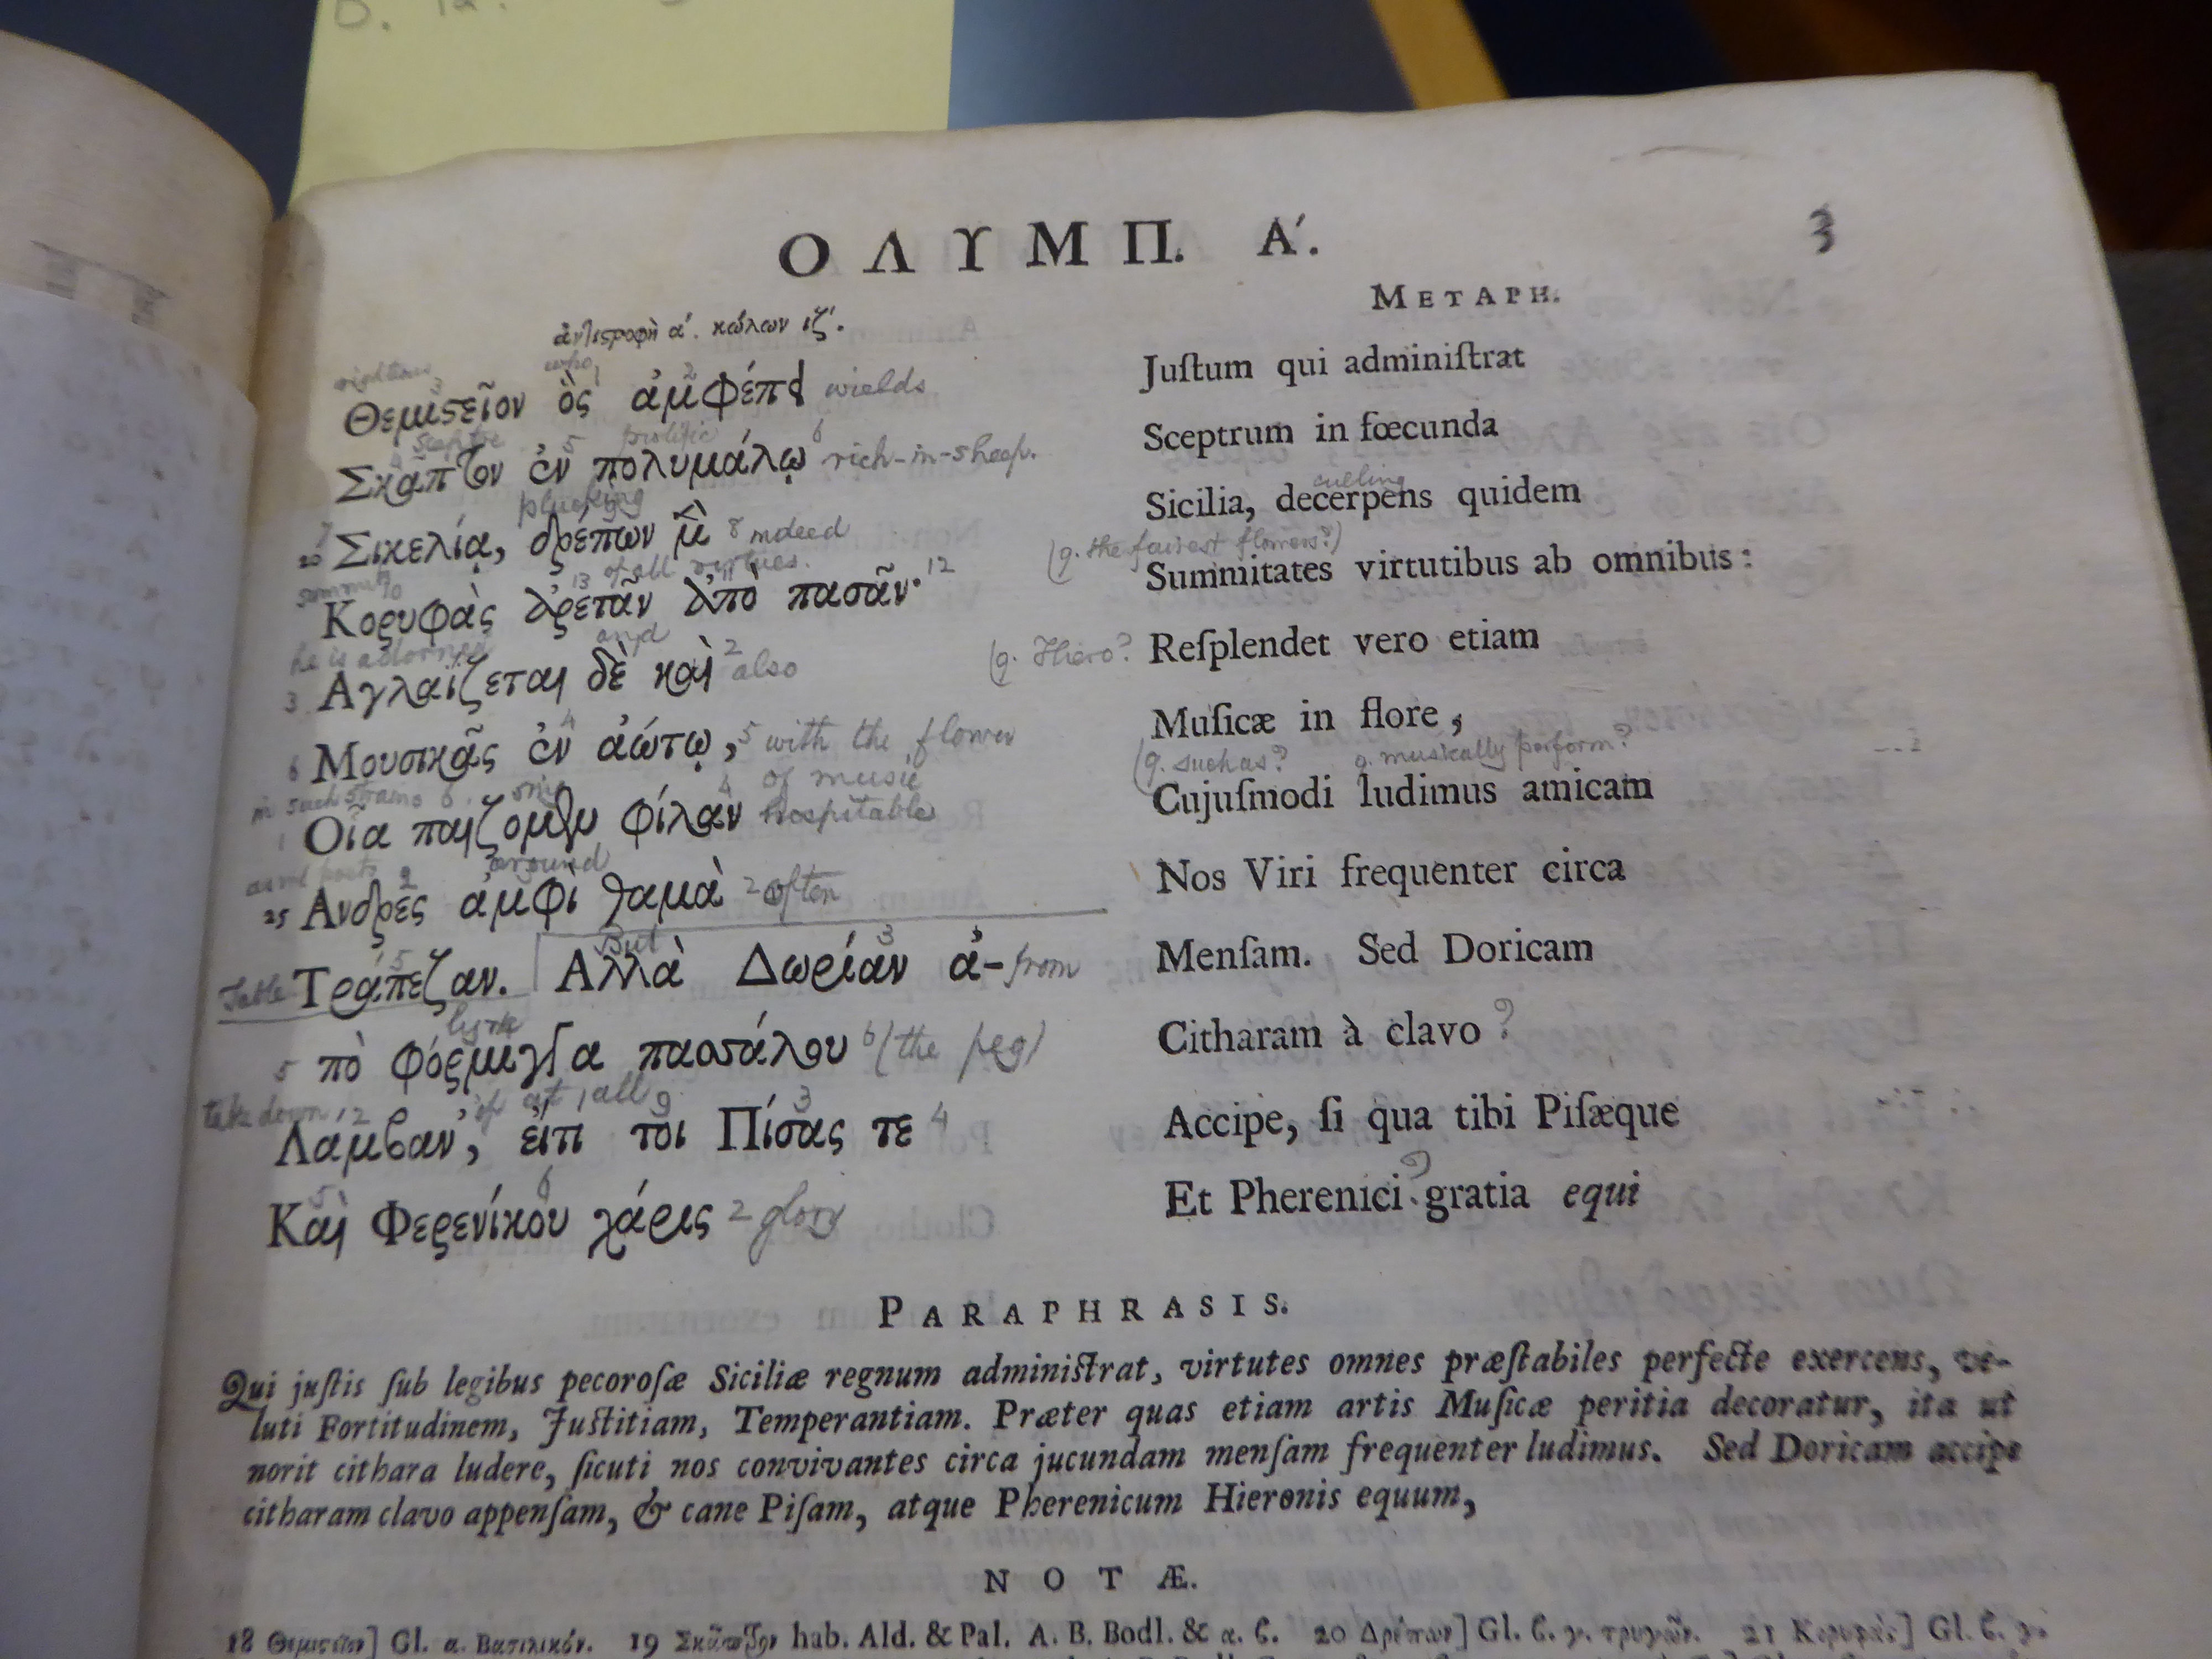 ΟΛΥΜΠ. Α΄.
3
ἀντιστροφὴ α΄. κώλων ιζ΄.
METAPH.
righteous who
Θεμιστεῖον ὃς ἀμφέπει wields
Justum qui administrat
sceptre prolific
Σκᾶπτον ἐν πολυμάλῳ rich-in-sheep.
Sceptrum in fœcunda
plucking
20 Σικελίᾳ, δρέπων μὲν indeed
culling
Sicilia, decerpens quidem
of all virtues.
Κορυφὰς ἀρετᾶν ἀπὸ πασᾶν·
(q. the fairest flowers?)
Summitates virtutibus ab omnibus:
he is adorned and
Ἀγλαΐζεται δὲ καὶ also
(q. Hiero?
Resplendet vero etiam
Μουσικᾶς ἐν ἀώτῳ, with the flower
of music
Musicæ in flore,
in such strains
Οἷα παίζομεν φίλαν hospitable
(q. such as? q. musically perform?
Cujusmodi ludimus amicam
around
25 Ἄνδρες ἀμφὶ θαμὰ often
Nos Viri frequenter circa
But
Table Τράπεζαν. Ἀλλὰ Δωρίαν ἀ- from
Mensam. Sed Doricam
lyre
πὸ φόρμιγγα πασσάλου (the peg)
Citharam à clavo ?
take down if at all
Λάμβαν᾽, εἴ τι τοι Πίσας τε
Accipe, si qua tibi Pisæque
Καὶ Φερενίκου χάρις glory
Et Pherenici ? gratia equi
PARAPHRASIS.
Qui justis sub legibus pecorosæ Siciliæ regnum administrat, virtutes omnes præstabiles perfecte exercens, ve-
luti Fortitudinem, Justitiam, Temperantiam. Præter quas etiam artis Musicæ peritia decoratur, ita ut
norit cithara ludere, sicuti nos convivantes circa jucundam mensam frequenter ludimus. Sed Doricam accipe
citharam clavo appensam, & cane Pisam, atque Pherenicum Hieronis equum,
NOTÆ.
18 Θεμιστεῖον] Gl. α. Βασιλικόν. 19 Σκᾶπτον hab. Ald. & Pal. A. B. Bodl. & α. β. 20 Δρέπων] Gl. β. γ. τρυγῶν. 21 Κορυφὰς] Gl. β. γ.